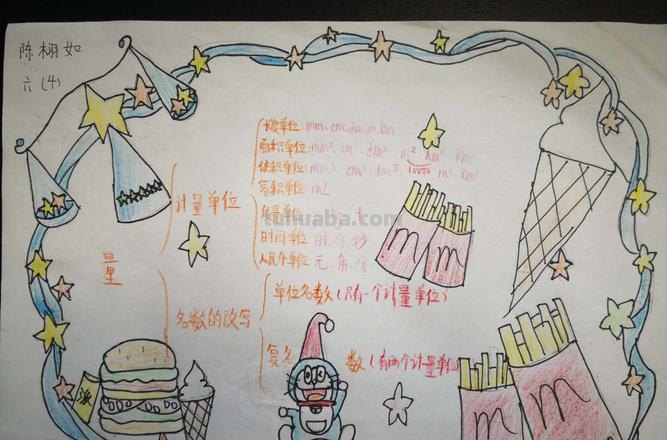 陈栩如
六(4)
长度单位:mm、cm、dm、m、km
面积单位:mm²、cm²、dm²、m²、hm²、km²
体积单位:mm³、cm³、dm³、m³、km³
10000
容积单位:mL
计量单位
质量单位:
tuhuaba.com
时间单位:时、分、秒
人民币单位:元、角、分
量
单位名数(只有一个计量单位)
名数的改写
复名数(有两个计量单位)
m m
m m